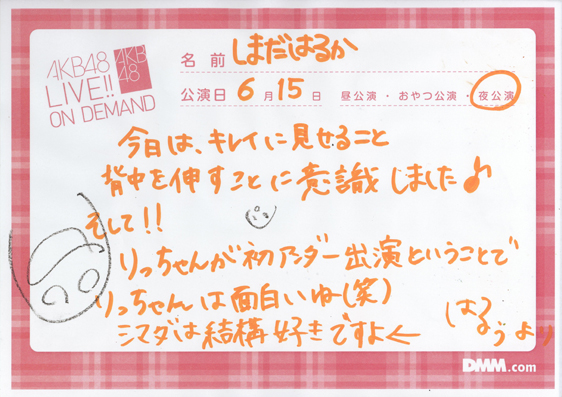 AKB48
LIVE!!
ON DEMAND
AKB
48
名前 しまだはるか
公演日 6月15日 昼公演・おやつ公演・夜公演
今日は、キレイに見せること
背中を伸すことに意識しました♪
そして!!
りっちゃんが初アンダー出演ということで
りっちゃんは面白いね(笑)
シマダは結構好きですよ←
はるぅより
DMM.com